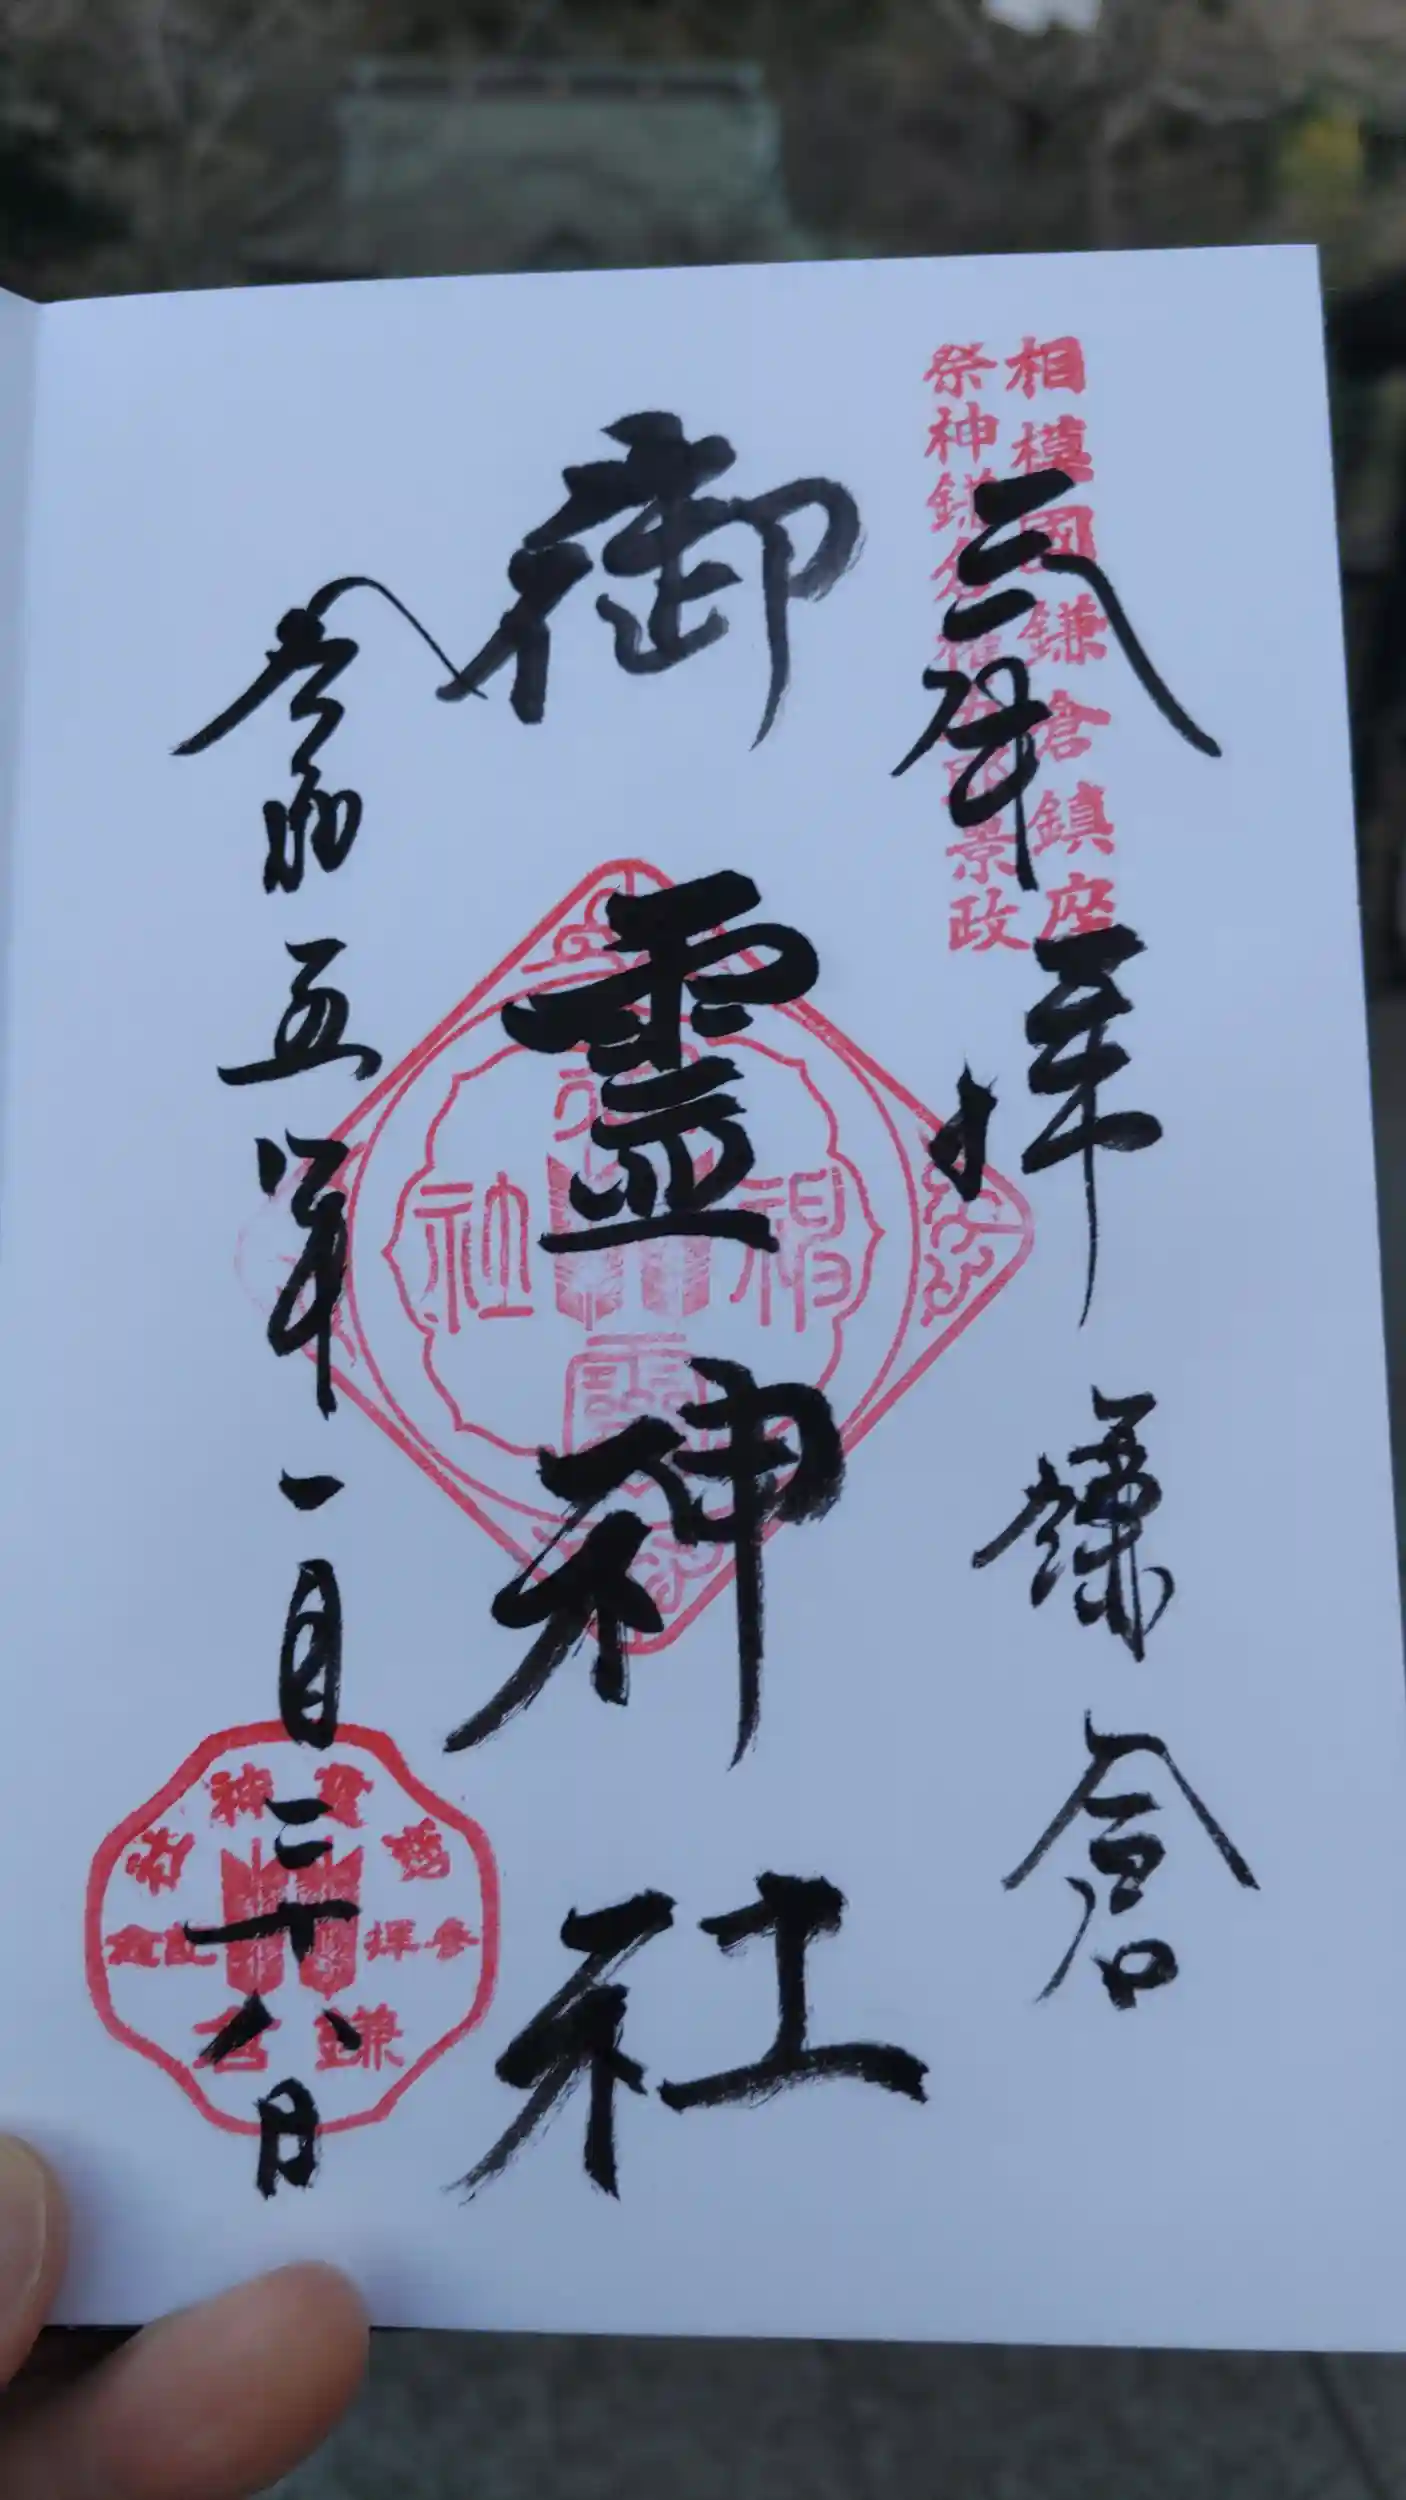 相模國鎌倉鎮座
祭神鎌倉権五郎景政
奉拝 鎌倉
御霊神社
御霊神社
令和五年一月二十八日
御霊神社
参拝記念
鎌倉